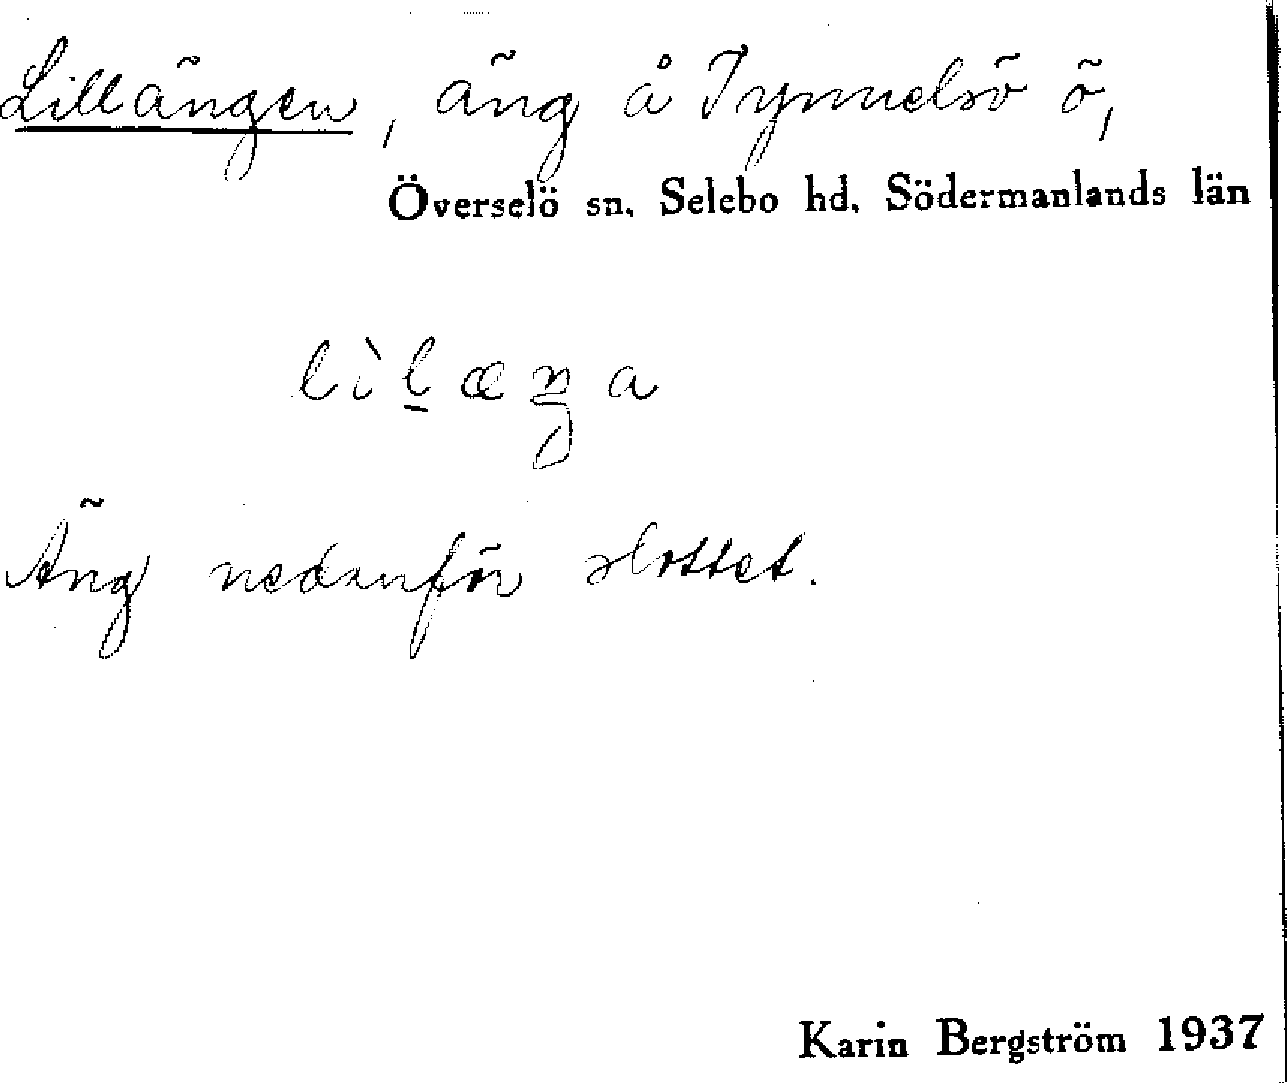 Lillängen, äng å Tynnelsö ö,
Överselö sn. Selebo hd. Södermanlands län
lìl̠æŋ̠a
Äng nedanför slottet.
Karin Bergström 1937